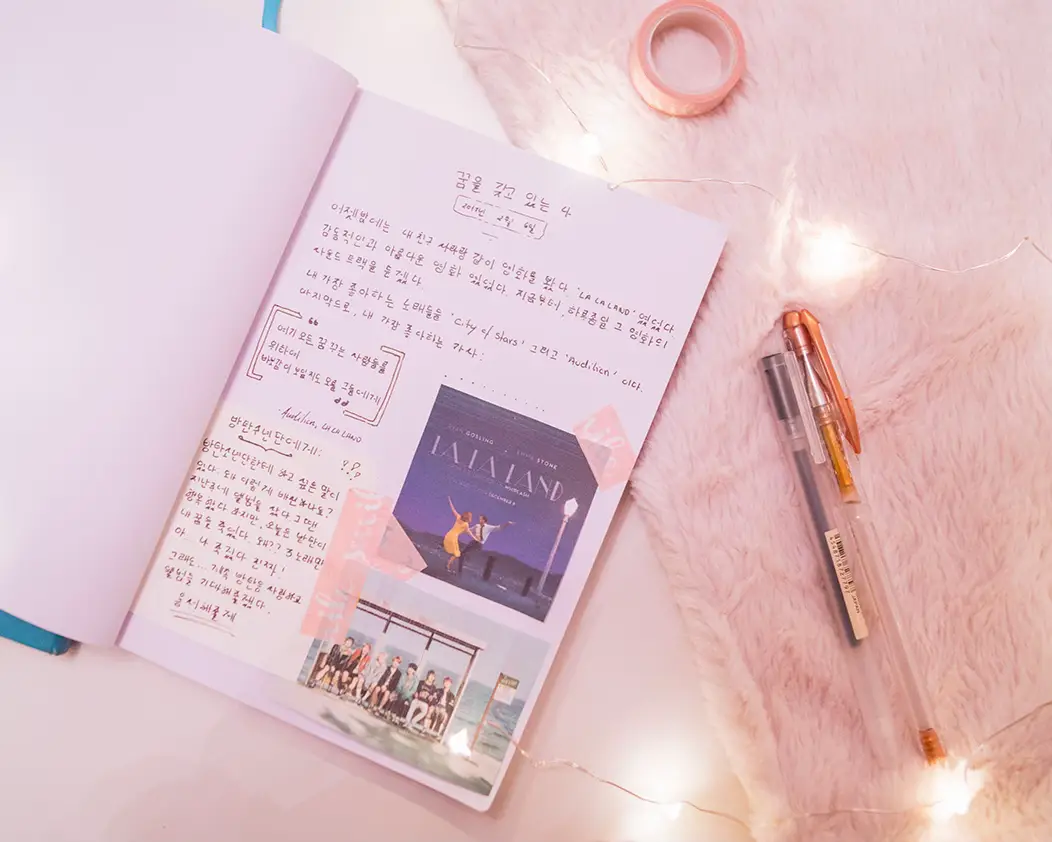 꿈을 갖고 있는 나
2017년 2월 6일
어젯밤에는 내 친구 사라랑 같이 영화를 봤다. 'LA LA LAND' 였었다.
감동적인과 아름다운 영화 있었다. 지금부터, 하루종일 그 영화의
사운드 트랙을 듣겠다.
내 가장 좋아하는 노래들은 'City of Stars' 그리고 'Audition' 이다.
마지막으로, 내 가장 좋아하는 가사:
"
여기 모든 꿈 꾸는 사람들을
위하여
바보같이 보일지도 모를 그들에게
"
- Audition, LA LA LAND
방탄소년단에게:
방탄소년단한테 하고 싶은 말이
있다. 왜 이렇게
지난주에 앨범을 샀다. 그땐
행복했다. 하지만, 오늘은 방탄이
내 꿈을 죽였다. 왜??
아... 나 죽겠다 진짜!
그래도... 계속 방탄을 사랑하고
앨범을 기대해
RYAN GOSLING
EMMA STONE
LA LA LAND
WHIPLASH
JAPAN